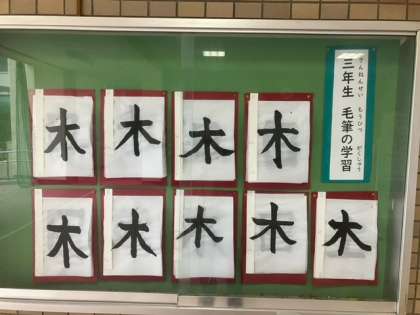 さんねんせい もうひつ がくしゅう
三年生 毛筆の学習
木
木
木
木
木
木
木
木
木